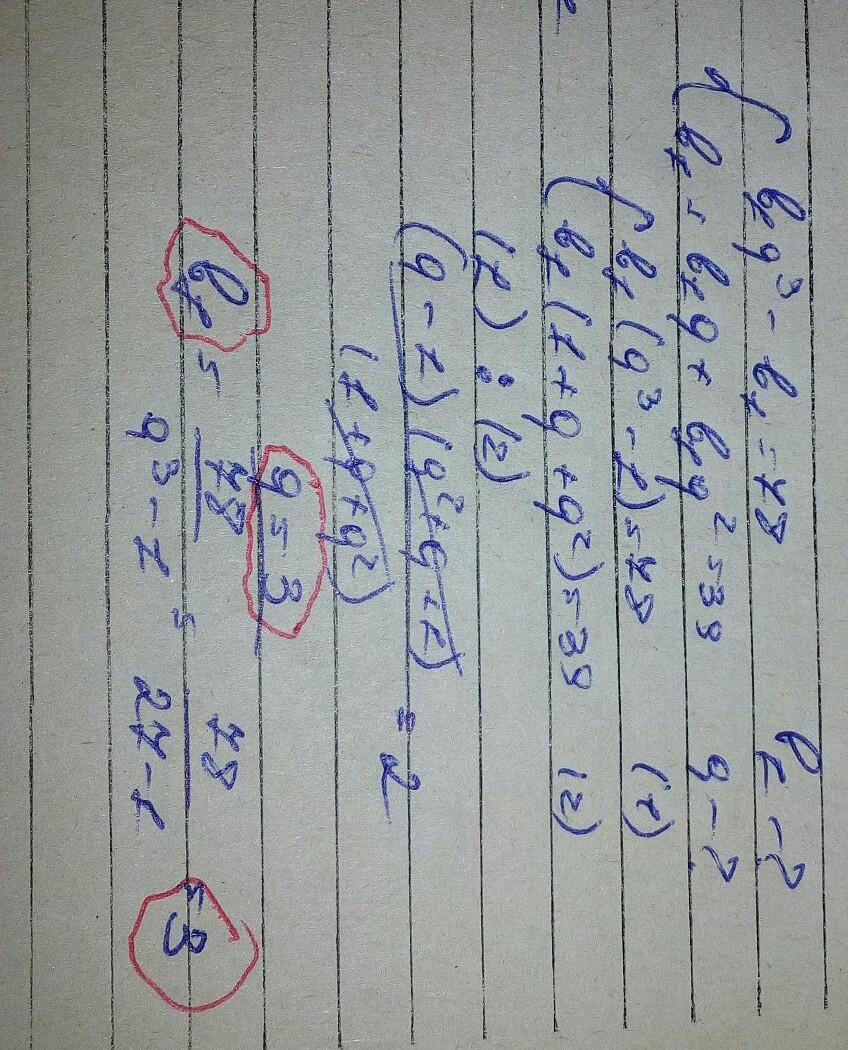 { b₁q³ - b₁ = 78 b₁ - ?
{ b₁ = b₁q + b₁q² = 39 q - ?
{ b₁(q³ - 1) = 78 (1)
{ b₁(1 + q + q²) = 39 (2)
(1) : (2)
(q - 1)(q² + q + 1)
(1 + q + q²) = 2
q = 3
b₁ = 78 / (q³ - 1) = 78 / (27 - 1) = 3